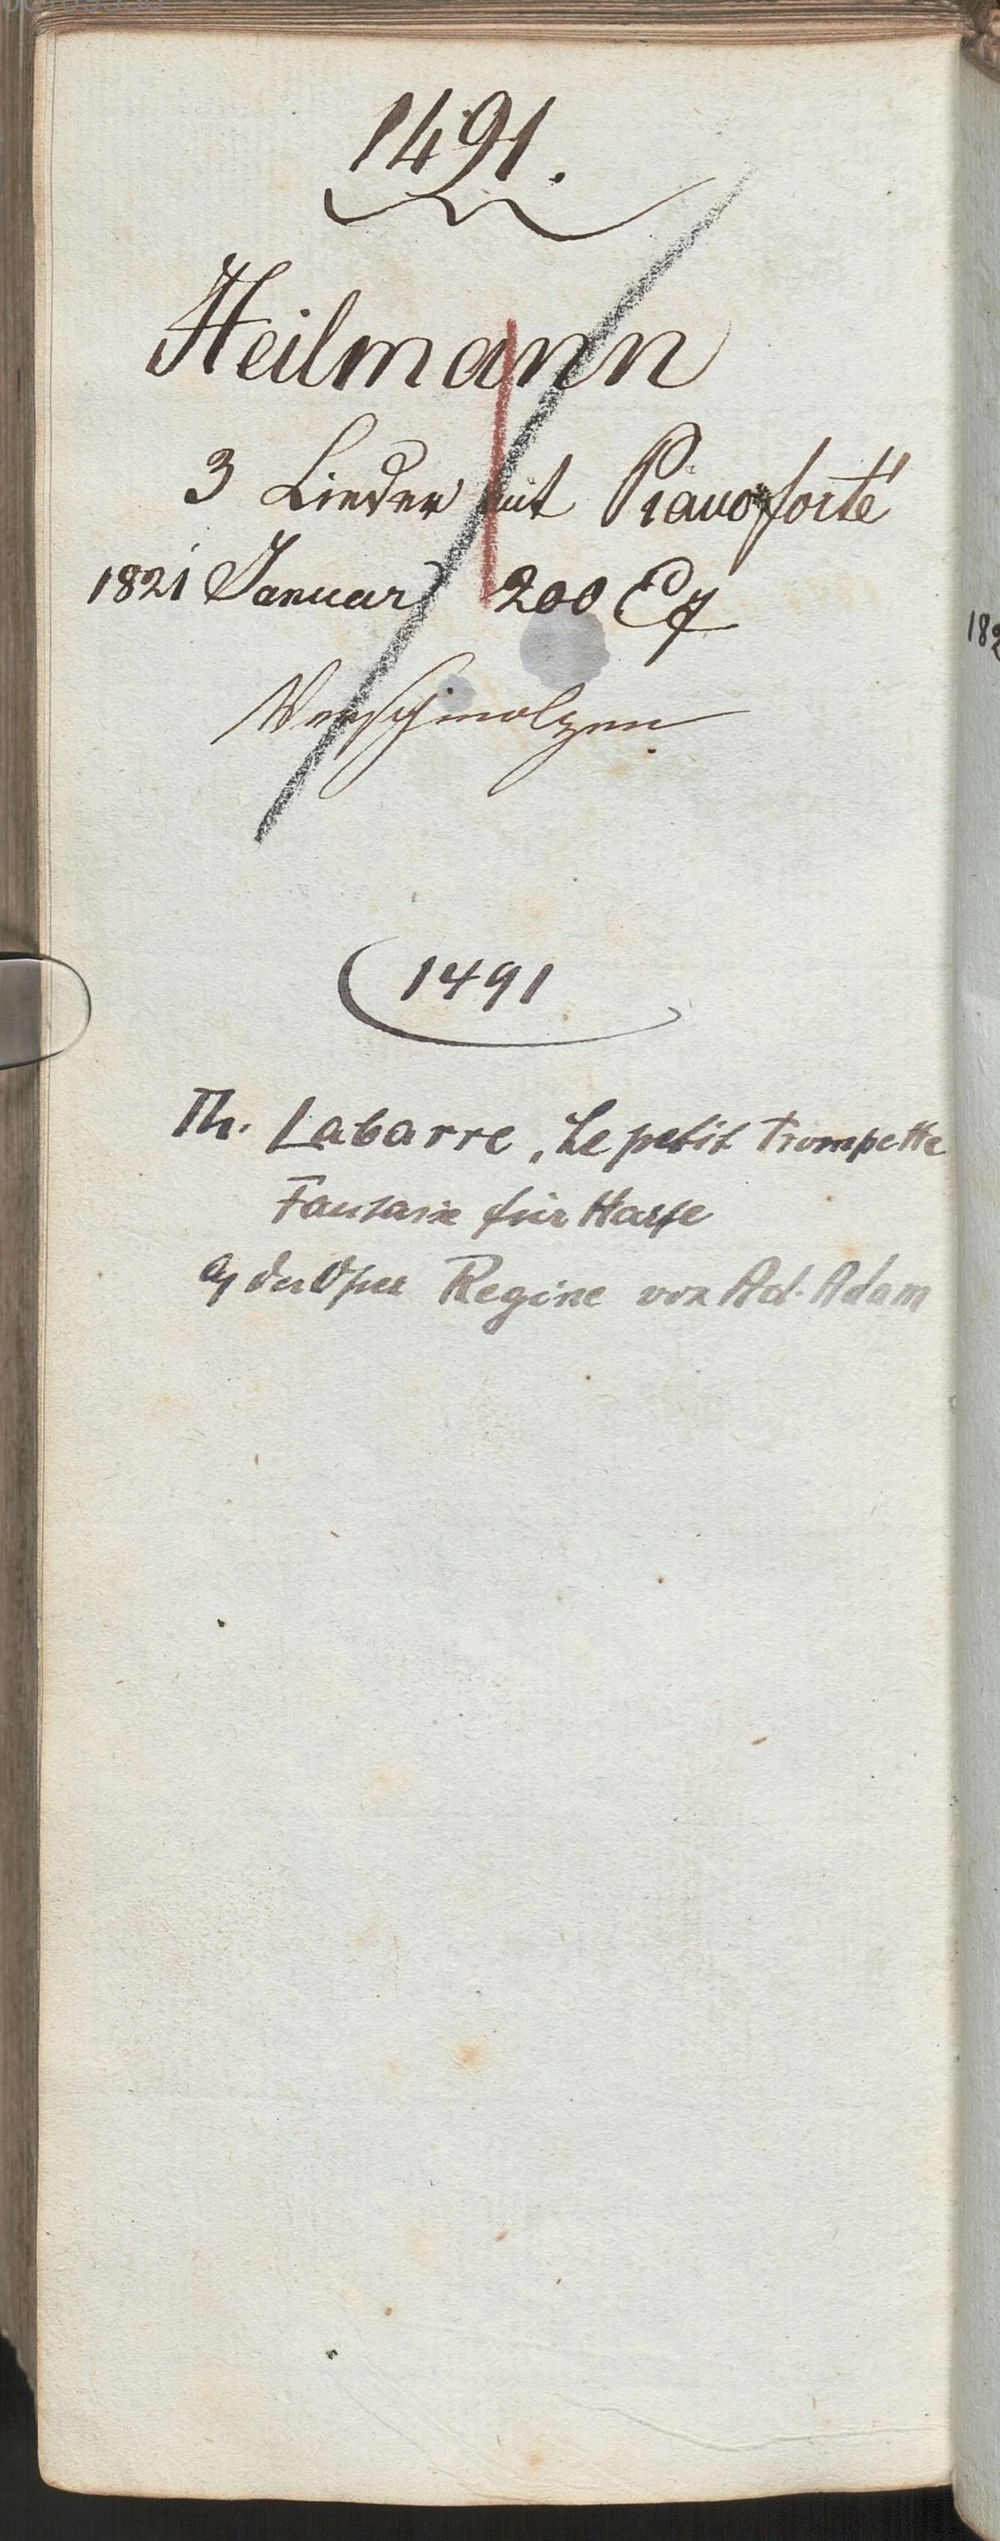 1491.
Heilmann
3 Lieder mit Pianoforte
1821 Januar 200 Ex
Verschmolzen
1491
Th. Labarre, Le petit Trompette
Fantasie für Harfe
der Oper Regine von Ad. Adam
182